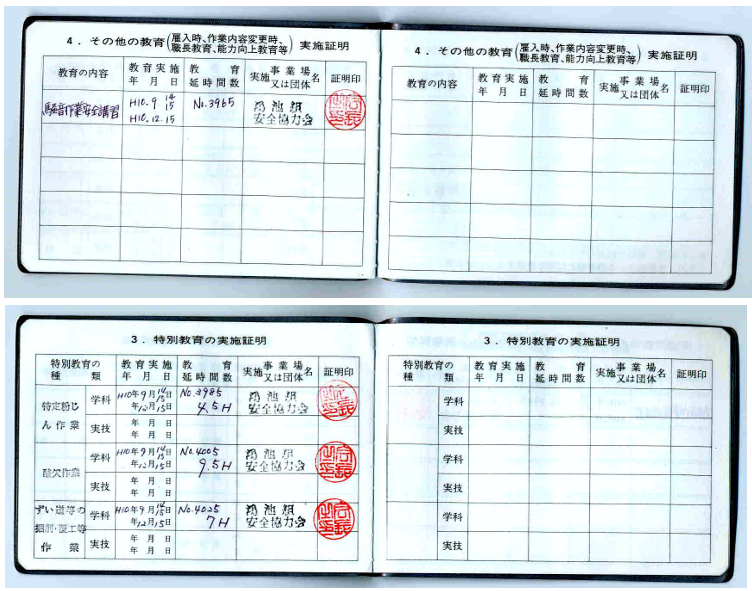 4．その他の教育（雇入時、作業内容変更時、職長教育、能力向上教育等）実施証明
教育の内容 教育実施年月日 教育延時間数 実施事業場名又は団体 証明印
騒音作業安全講習 H10.9 14 15 No.3965 鴻池組
H10.12.15 安全協力会
4．その他の教育（雇入時、作業内容変更時、職長教育、能力向上教育等）実施証明
教育の内容 教育実施年月日 教育延時間数 実施事業場名又は団体 証明印
3．特別教育の実施証明
特別教育の種類 教育実施年月日 教育延時間数 実施事業場名又は団体 証明印
特定粉じん作業 学科 H10年9月14日 15 No.3985 鴻池組
年12月15日 4.5H 安全協力会
実技 年月日
年月日
酸欠作業 学科 H10年9月14日 15 No.4005 鴻池組
年12月15日 9.5H 安全協力会
実技 年月日
年月日
ずい道等の掘削・覆工等作業 学科 H10年9月14日 15 No.4025 鴻池組
年12月15日 7H 安全協力会
実技 年月日
年月日
3．特別教育の実施証明
特別教育の種類 教育実施年月日 教育延時間数 実施事業場名又は団体 証明印
学科
実技
学科
実技
学科
実技